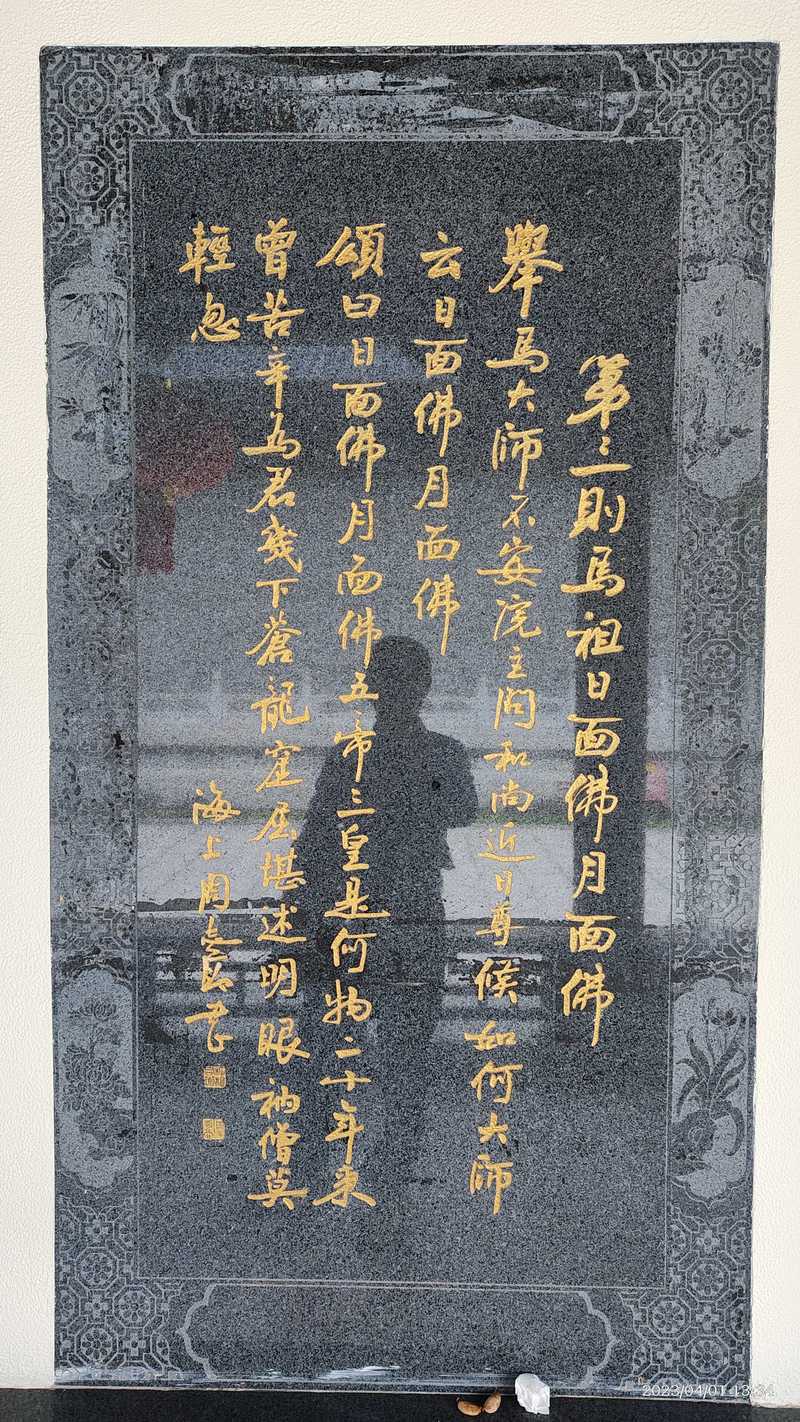 第三則馬祖日面佛月面佛
舉馬大師不安院主問和尚近日尊候如何大師
云日面佛月面佛
頌曰日面佛月面佛五帝三皇是何物二十年來
曾苦辛為君幾下蒼龍窟屈堪述明眼衲僧莫
輕忽
海上周書
2023/04/01 13:34